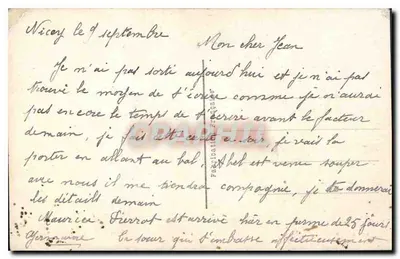 Nicey le 9 septembre
Mon cher Jean
Je n'ai pas sorti aujourd'hui et je n'ai pas
trouvé le moyen de t'écrire comme je n'aurai
pas encore le temps de t'écrire avant le facteur
demain, je fais cette ce soir, je vais la
porter en allant au bal, Abel est venu souper
avec nous il me tiendra compagnie, je te donnerai
les détails demain
Maurice Pierrot est arrivé hier en perme de 25 jours
Germaine ta sœur qui t'embrasse affectueusement